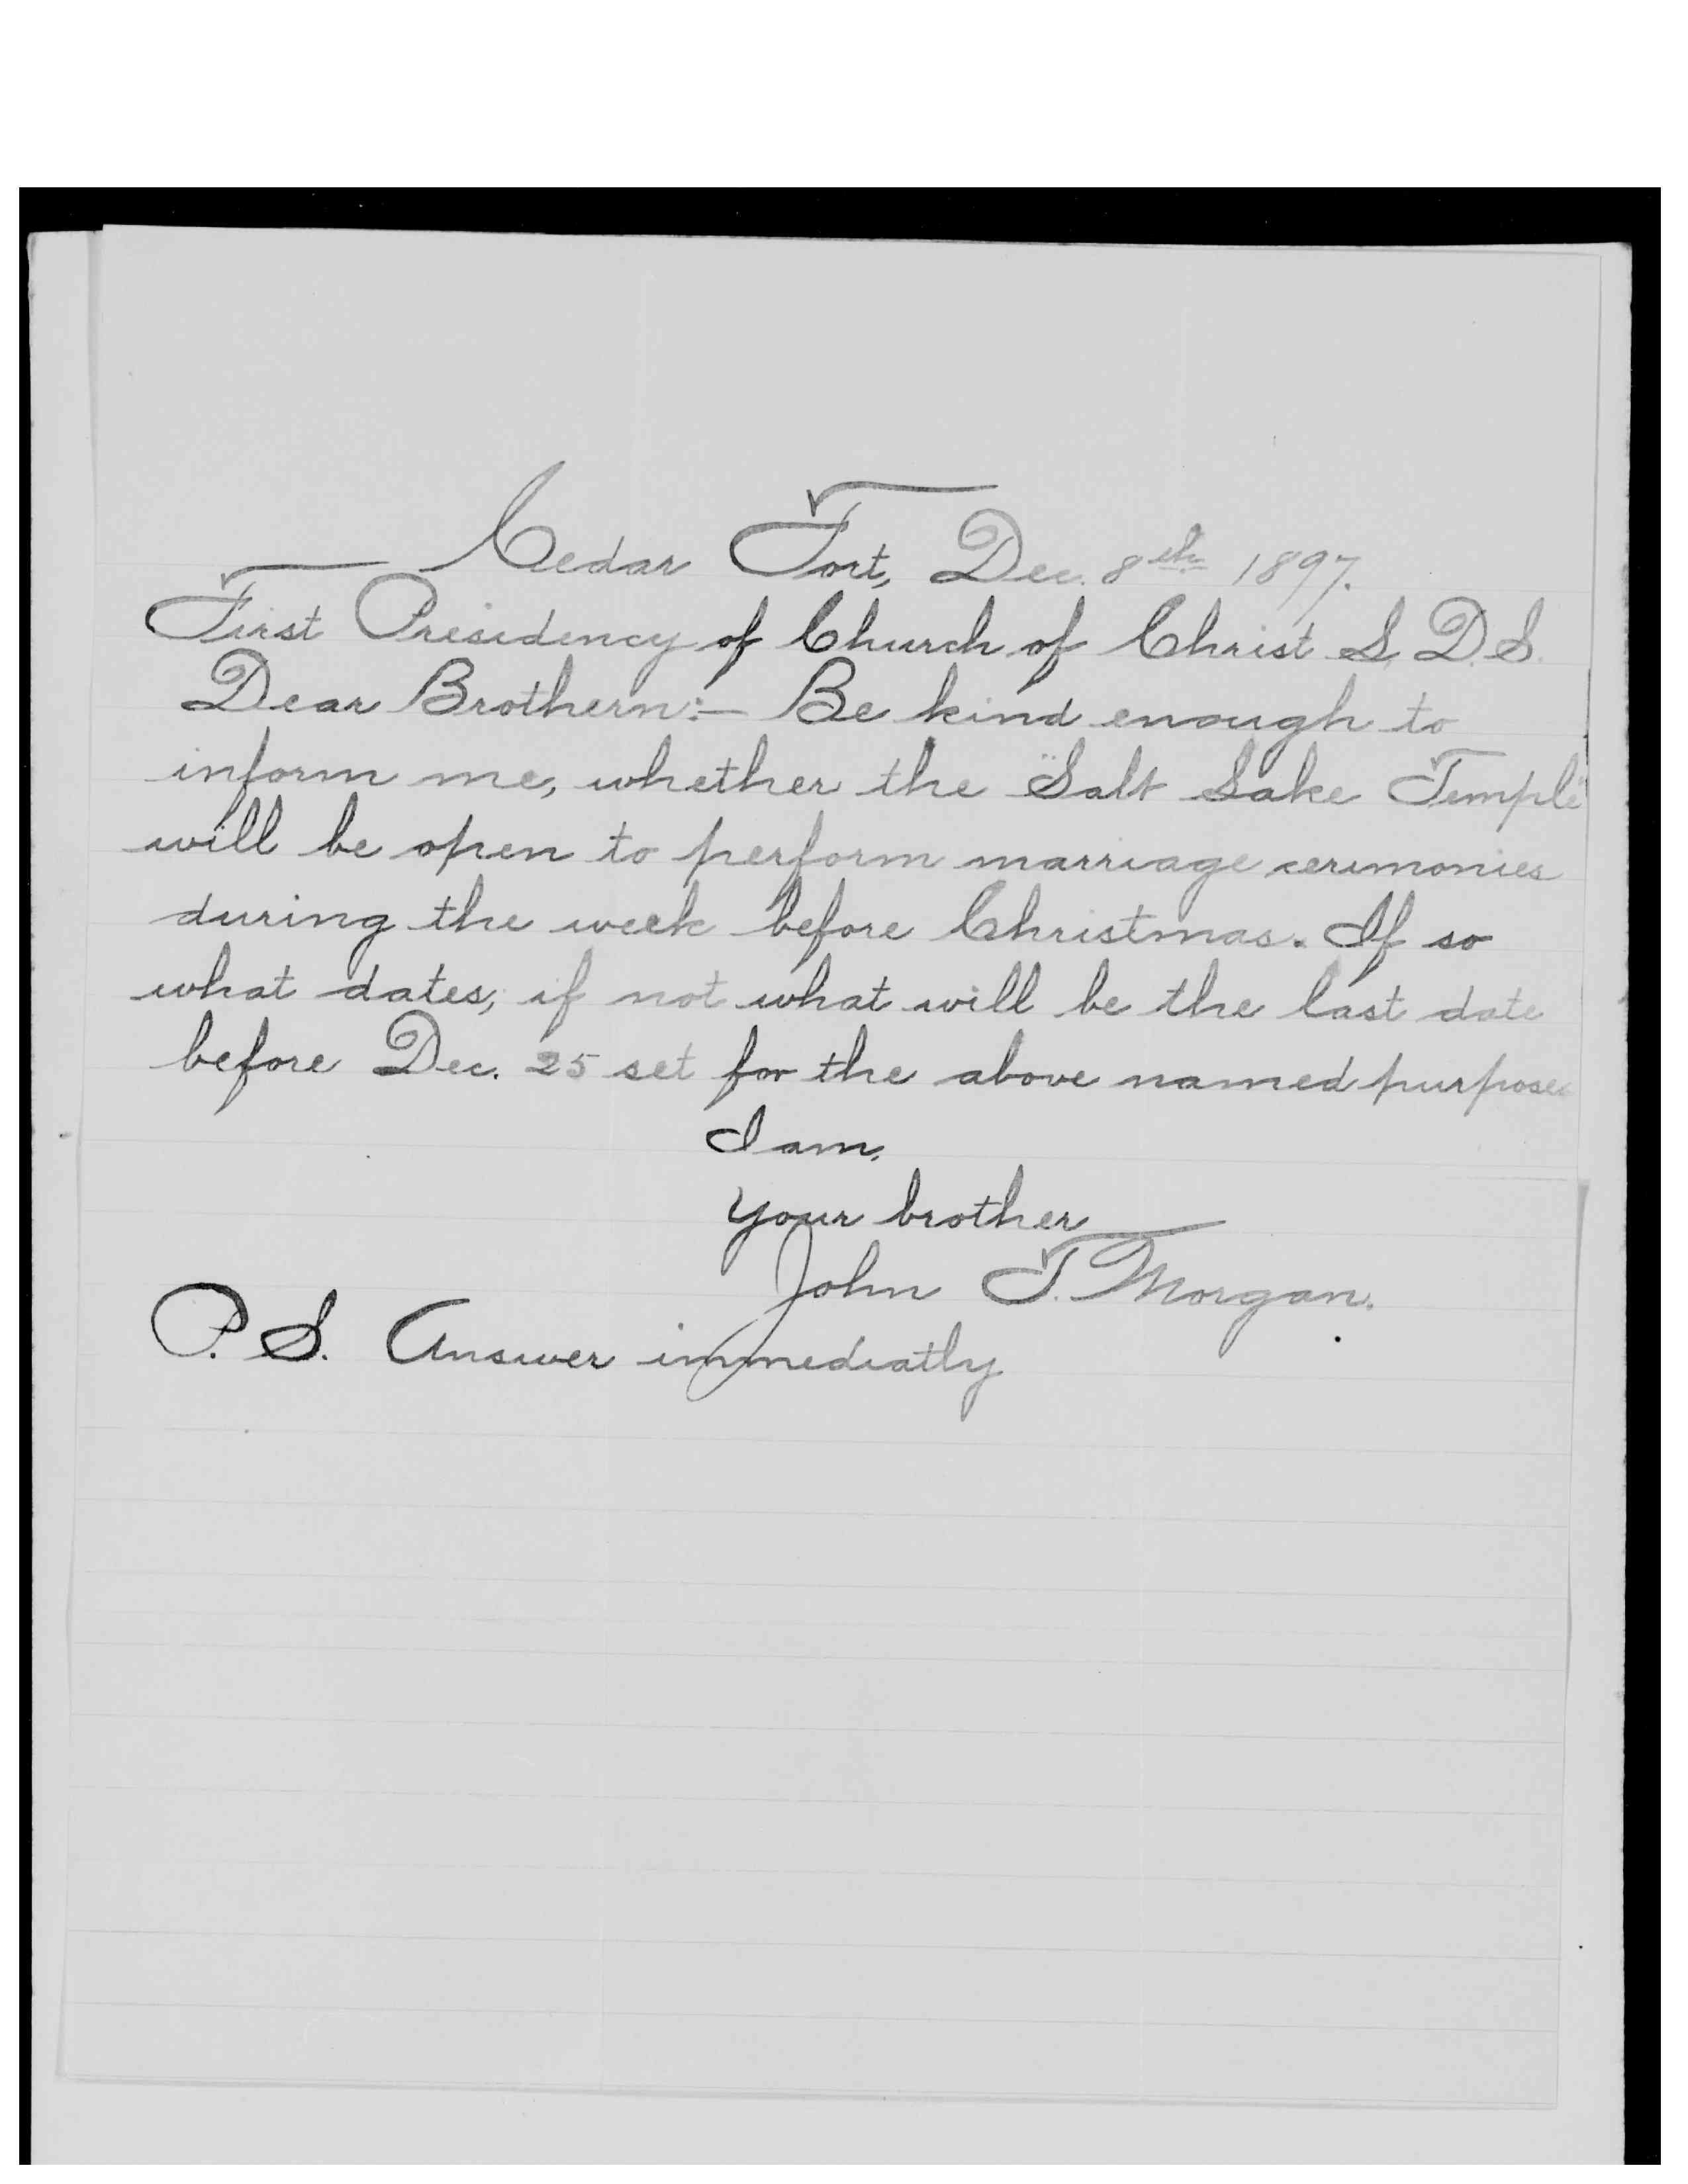 Cedar Fort, Dec. 8th 1897.
First Presidency of Church of Christ L. D. S.
Dear Brothern:– Be kind enough to
inform me, whether the "Salt Lake Temple"
will be open to perform marriage cerimonies
during the week before Christmas. If so
what dates; if not what will be the last date
before Dec. 25 set for the above named purposes
I am.
Your brother
John T. Morgan.
P. S. Answer immediatly